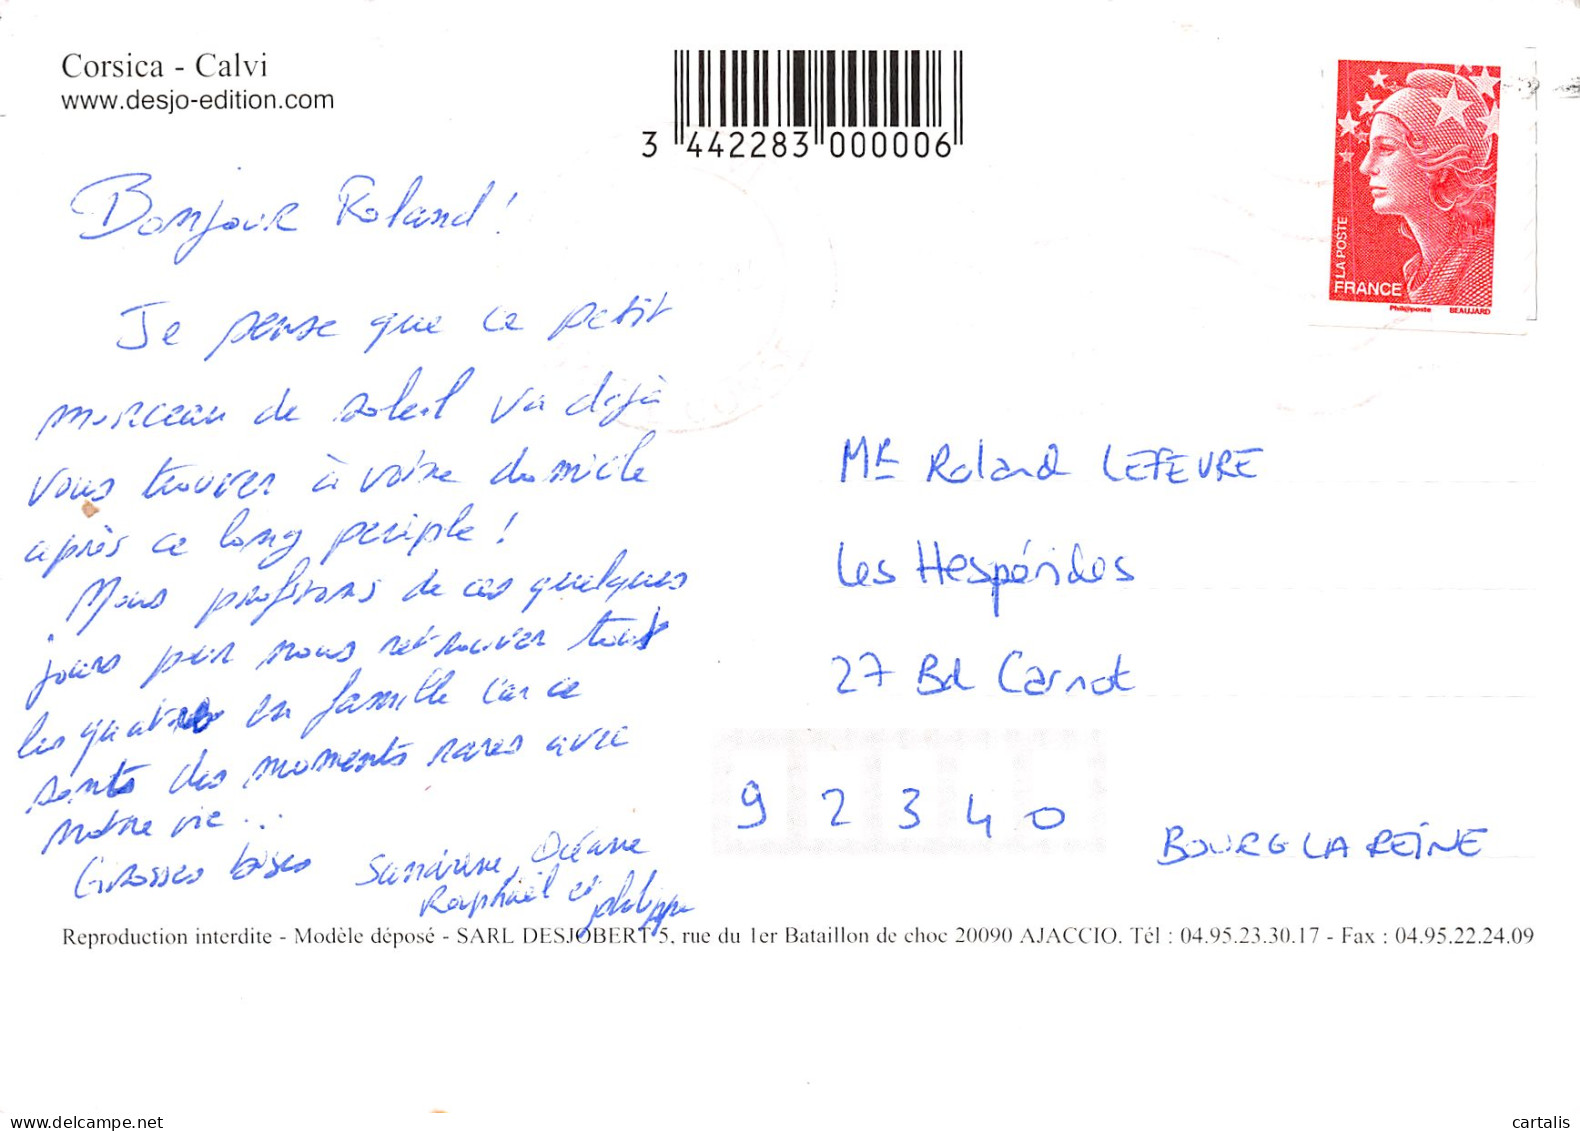 Corsica - Calvi
www.desjo-edition.com
3 442283 000006
LA POSTE
FRANCE
Phil@poste BEAUJARD
Bonjour Roland !
Je pense que ce petit
morceau de soleil va déjà
vous trouver à votre domicile
après ce long periple !
Nous profitons de ces quelques
jours pour nous retrouver tous
les quatre en famille car ce
sont des moments rares avec
notre vie...
Grosses bises Sandrine, Océane
Raphaël et philippe
Mr Roland LEFEVRE
Les Hespérides
27 Bd Carnot
92340
BOURG LA REINE
Reproduction interdite - Modèle déposé - SARL DESJOBERT 5, rue du 1er Bataillon de choc 20090 AJACCIO. Tél : 04.95.23.30.17 - Fax : 04.95.22.24.09
www.delcampe.net
cartalis